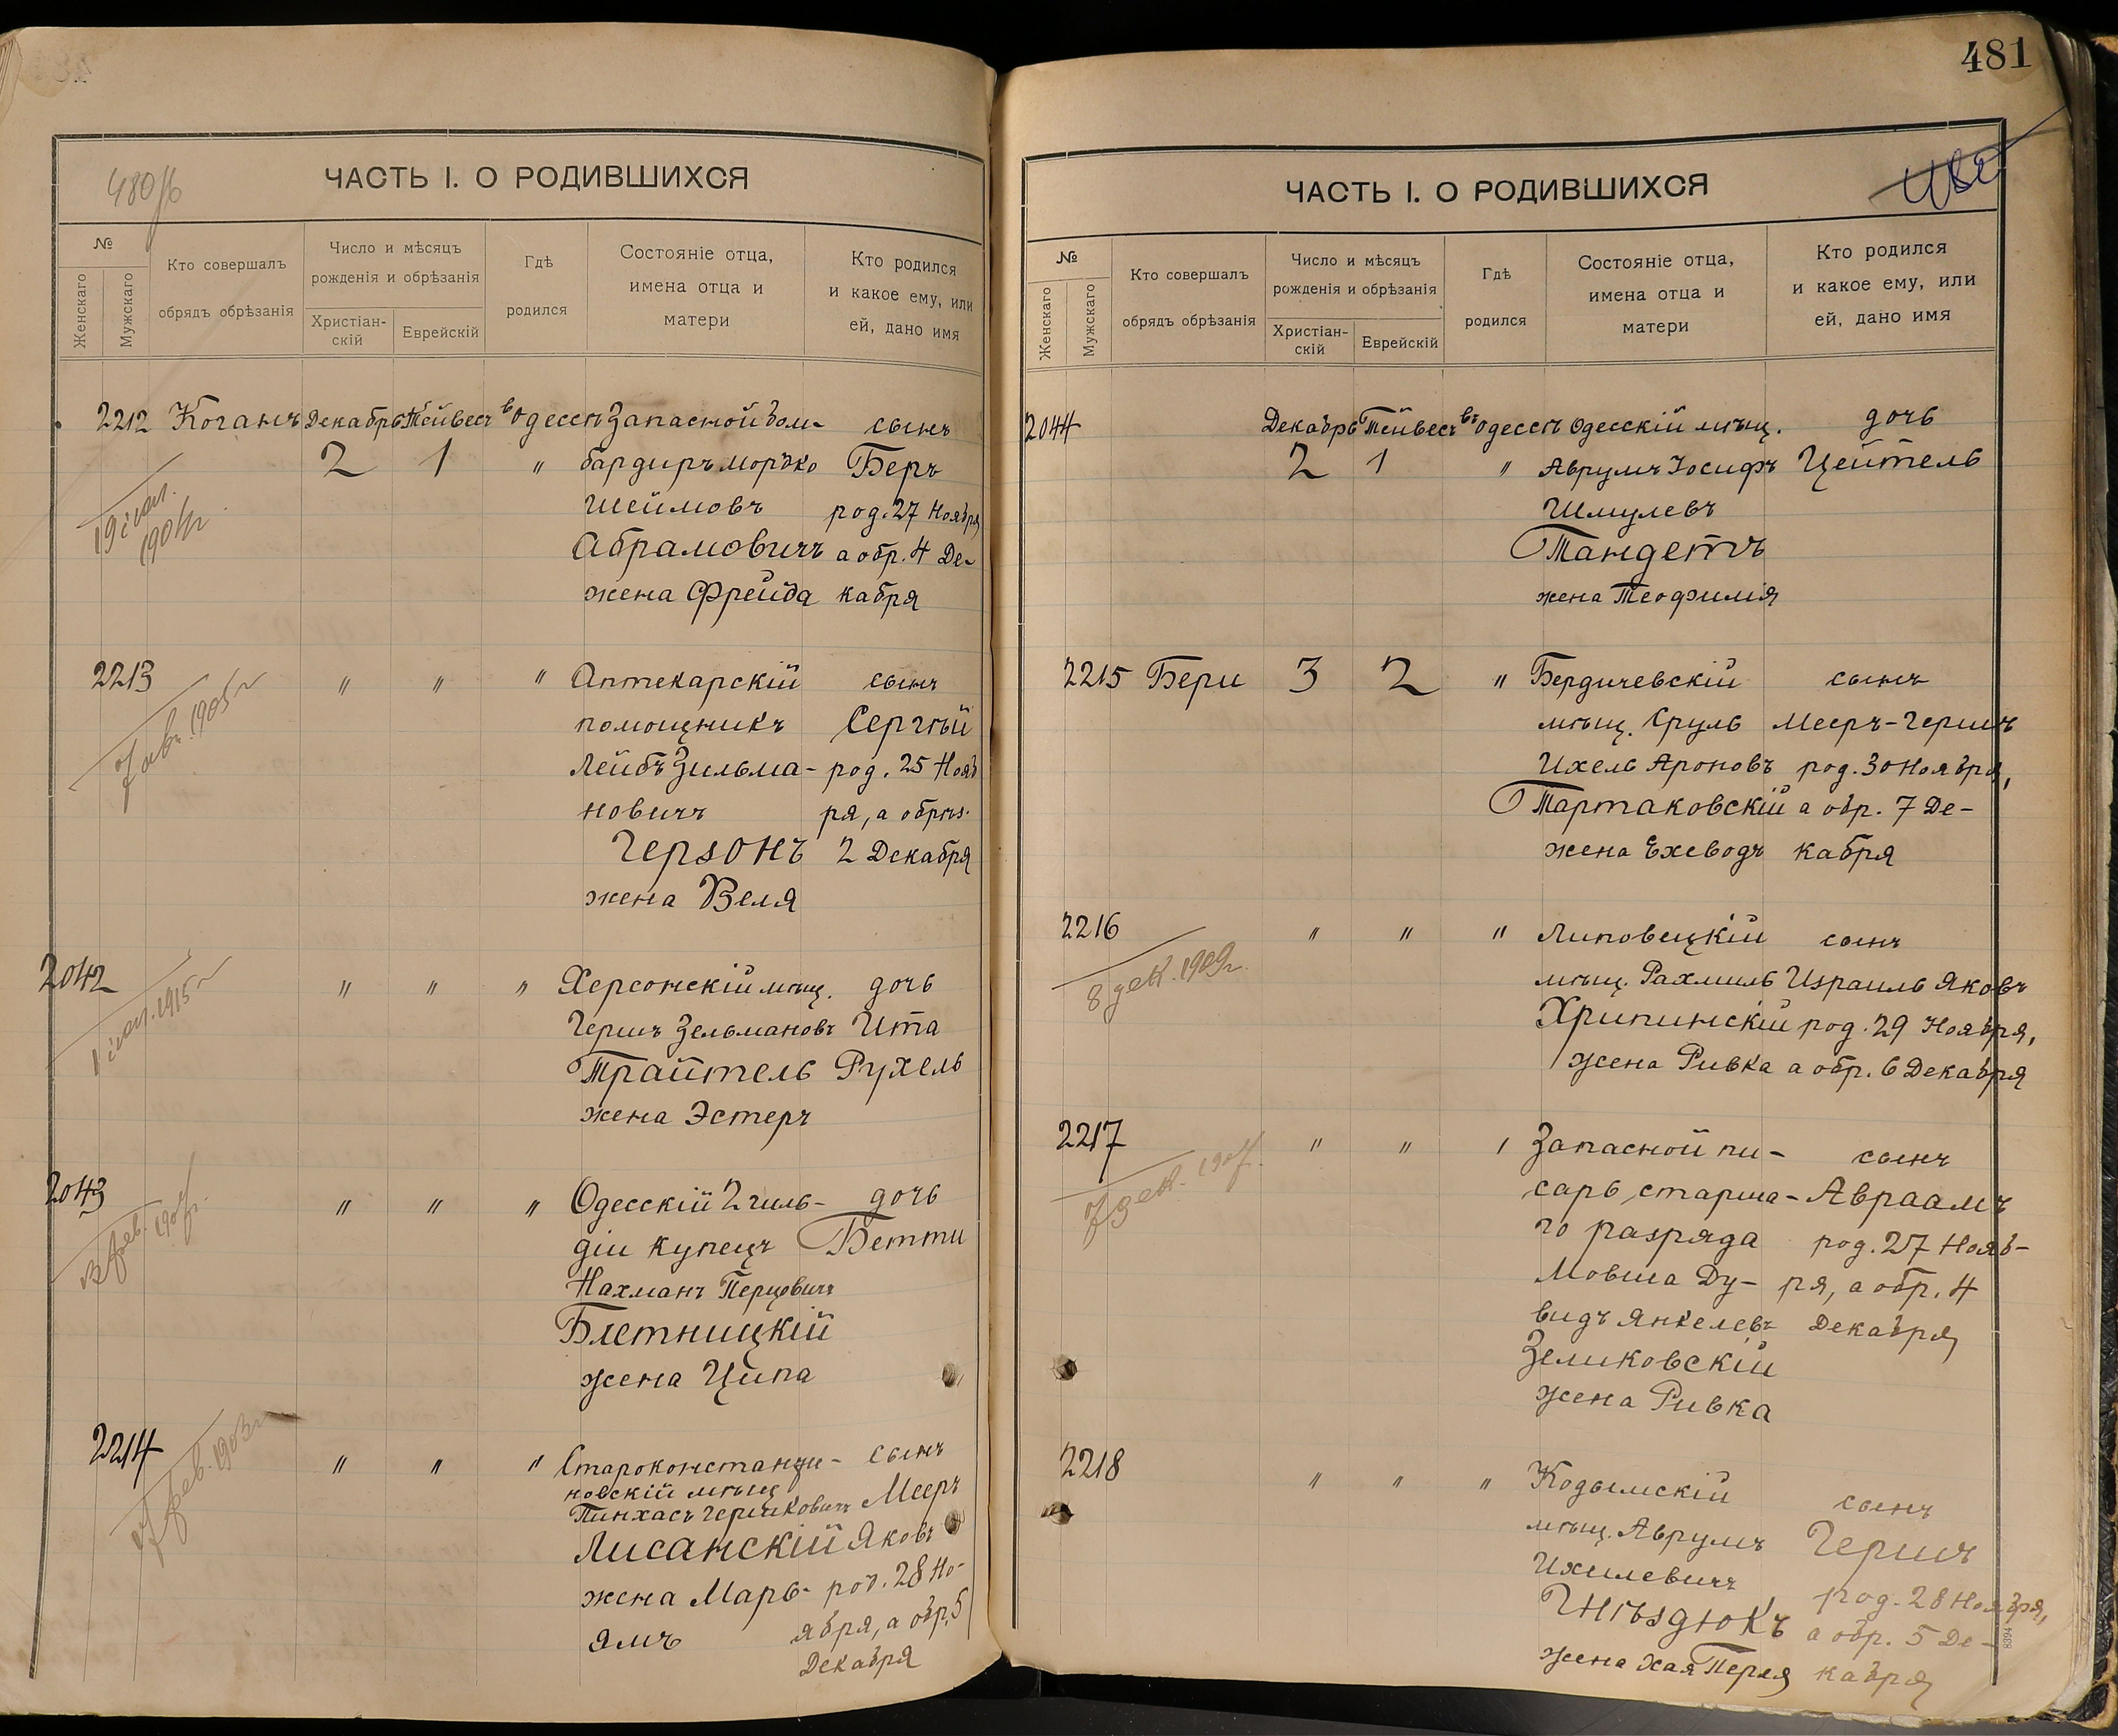 480/б
ЧАСТЬ I. О РОДИВШИХСЯ
№
Женскаго
Мужскаго
Кто совершалъ
обрядъ обрѣзанія
Число и мѣсяцъ
рожденія и обрѣзанія
Христіан-
скій
Еврейскій
Гдѣ
родился
Состояніе отца,
имена отца и
матери
Кто родился
и какое ему, или
ей, дано имя
2212 Коганъ Декабрь Тейвесъ въ Одессѣ Запасной бом- сынъ
2 1 " бардиръ Мордко Беръ
Шеймовъ род. 27 Ноября
Абрамовичъ а обр. 4 Де-
жена Фрейда кабря
1904г.
2213 " " " Аптекарскій сынъ
помощникъ Сергѣй
Лейбъ Зильма- род. 25 Нояб
новичъ ря, а обрѣз.
Герзонъ 2 Декабря
жена Веля
1905г
2042 " " " Херсонскій мѣщ. дочь
Гершъ Зельмановъ Ита
Трайтель Рухель
жена Эстеръ
1915г
2043 " " " Одесскій 2 гиль- дочь
діи купецъ Бетти
Нахманъ Перцовичъ
Блетницкій
жена Ципа
2214 " " " Староконстанти- сынъ
новскій мѣщ
Пинхасъ Гершковичъ Мееръ
Лисанскій Яковъ
жена Марь- род. 28 Но-
ямъ ября, а обр. 5
Декабря
481
ЧАСТЬ I. О РОДИВШИХСЯ
№
Женскаго
Мужскаго
Кто совершалъ
обрядъ обрѣзанія
Число и мѣсяцъ
рожденія и обрѣзанія
Христіан-
скій
Еврейскій
Гдѣ
родился
Состояніе отца,
имена отца и
матери
Кто родился
и какое ему, или
ей, дано имя
2044 Декабрь Тейвесъ въ Одессѣ Одесскій мѣщ. дочь
2 1 " Аврумъ Іосифъ Цейтель
Шмулевъ
Тандетъ
жена Теофилія
2215 Бери 3 2 " Бердичевскій сынъ
мѣщ. Сруль Мееръ-Гершъ
Ихель Ароновъ род. 30 Ноября,
Тартаковскій а обр. 7 Де-
жена Ехеводъ кабря
2216 " " " Липовецкій сынъ
мѣщ. Рахмиль Израиль Яковъ
Хрипинскій род. 29 Ноября,
жена Ривка а обр. 6 Декабря
8 дек. 1909г.
2217 " " " Запасной пи- сынъ
сарь старша- Авраамъ
го разряда род. 27 Нояб-
Мовша Ду- ря, а обр. 4
видъ Янкелевъ Декабря
Зеликовскій
жена Ривка
2218 " " " Кодымскій сынъ
мѣщ. Аврумъ Гершъ
Ихилевичъ род. 28 Ноября,
Гнѣздюкъ а обр. 5 Де-
жена Хая Перля кабря